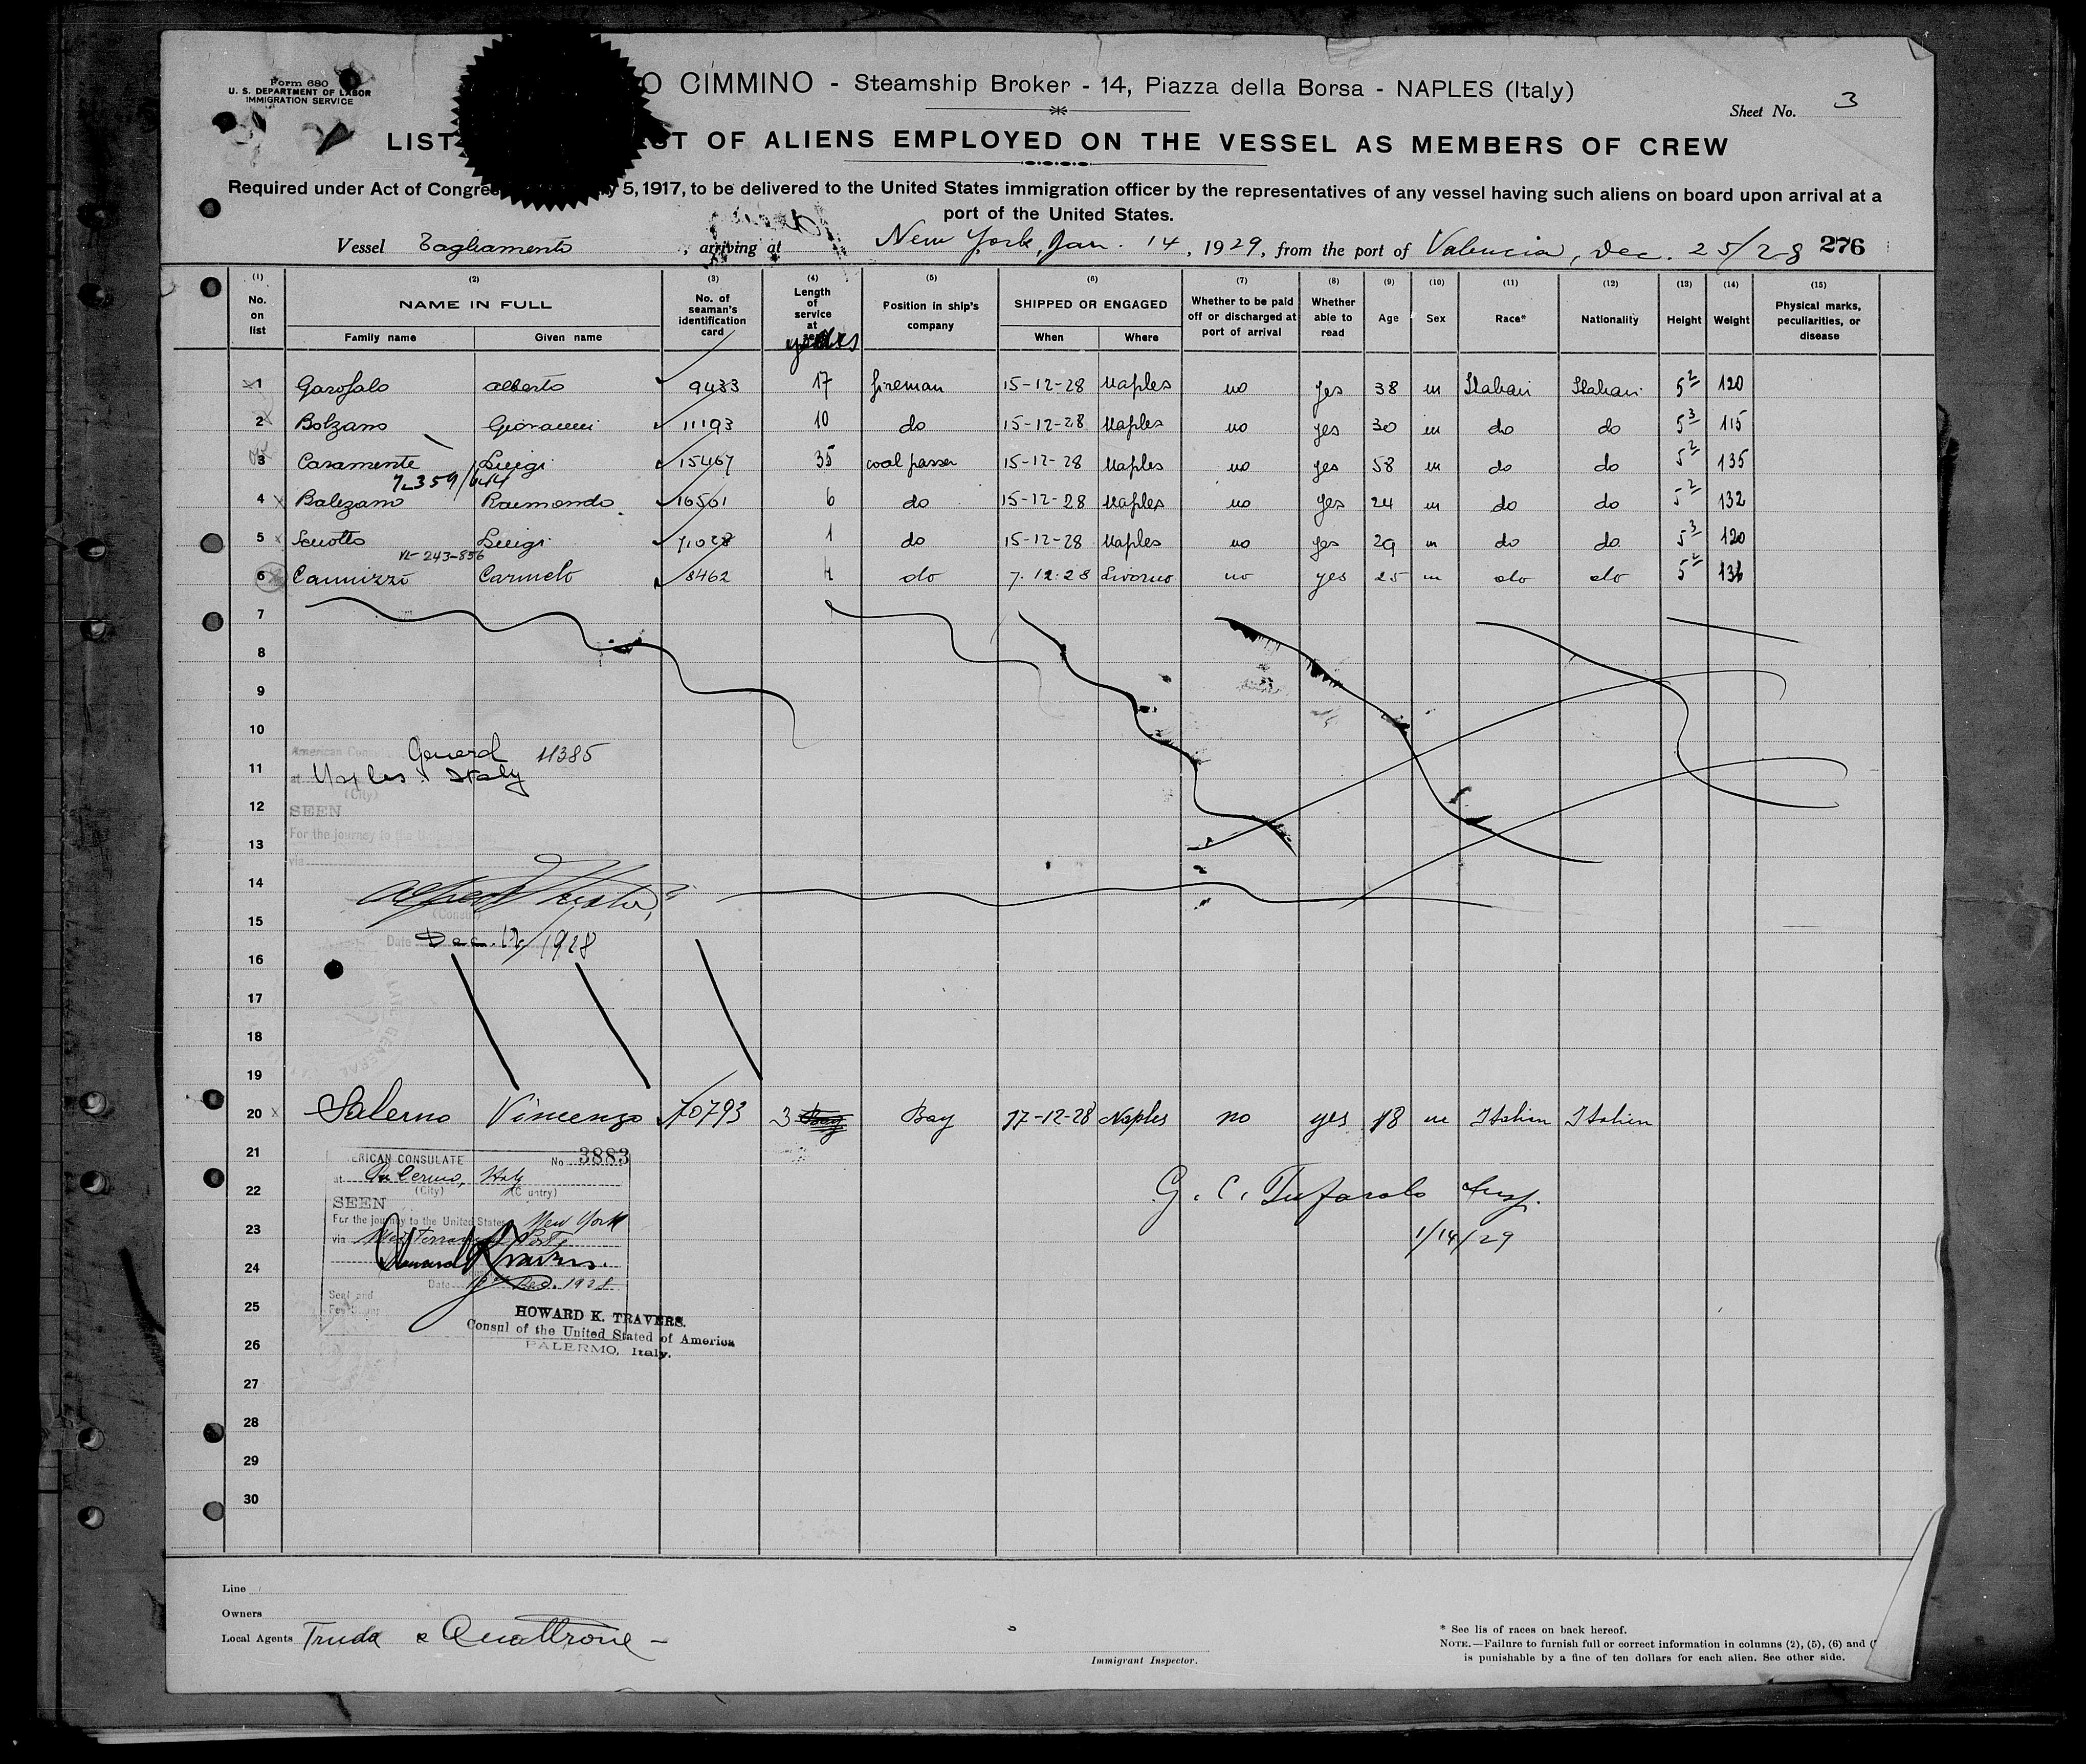 Form 680
U. S. DEPARTMENT OF LABOR
IMMIGRATION SERVICE
O CIMMINO - Steamship Broker - 14, Piazza della Borsa - NAPLES (Italy)
Sheet No. 3
LIST ST OF ALIENS EMPLOYED ON THE VESSEL AS MEMBERS OF CREW
Required under Act of Congre y 5, 1917, to be delivered to the United States immigration officer by the representatives of any vessel having such aliens on board upon arrival at a
port of the United States.
Vessel Tagliamento, arriving at New York, Jan. 14, 1929, from the port of Valencia, Dec. 25/28 276
(1) (2) (3) (4) (5) (6) (7) (8) (9) (10) (11) (12) (13) (14) (15)
No. on list NAME IN FULL No. of seaman's identification card Length of service at Position in ship's company SHIPPED OR ENGAGED Whether to be paid off or discharged at port of arrival Whether able to read Age Sex Race* Nationality Height Weight Physical marks, peculiarities, or disease
Family name Given name When Where
years
1 Garofalo Alberto 9433 17 fireman 15-12-28 Naples no yes 38 m Italian Italian 5 2 120
2 Bolzano Giovanni 11193 10 do 15-12-28 Naples no yes 30 m do do 5 3 115
3 Casamente Luigi 15467 35 coal passer 15-12-28 Naples no yes 58 m do do 5 2 135
7-359/444
4 Balezamo Raimondo 16561 6 do 15-12-28 Naples no yes 24 m do do 5 2 132
5 Scuotto Luigi 71028 1 do 15-12-28 Naples no yes 29 m do do 5 3 120
VL-243-856
6 Cannizzo Carmelo 8462 4 do 7.12.28 Livorno no yes 25 m do do 5 2 136
7
8
9
10
American General 11385
11
at Naples Italy
(City)
12
SEEN
For the journey to the United States
13
via
14
(Consul)
15
Date Dec. 12/1928
16
17
18
19
20 Salerno Vincenzo 70793 3 Boy 17-12-28 Naples no yes 18 m Italian Italian
21
ERICAN CONSULATE No 3883
at Palermo, Italy
22
(City) (C untry)
G. C. Tufarolo Insp.
SEEN
For the journey to the United States New York
23
via
1/14/29
24
Date 18 Dec. 1928
25
HOWARD K. TRAVERS.
Consul of the United Stated of America
26
PALERMO, Italy.
27
28
29
30
Line
Owners
Local Agents Truda & Quattrone -
Immigrant Inspector.
* See lis of races on back hereof.
NOTE.—Failure to furnish full or correct information in columns (2), (5), (6) and (
is punishable by a fine of ten dollars for each alien. See other side.